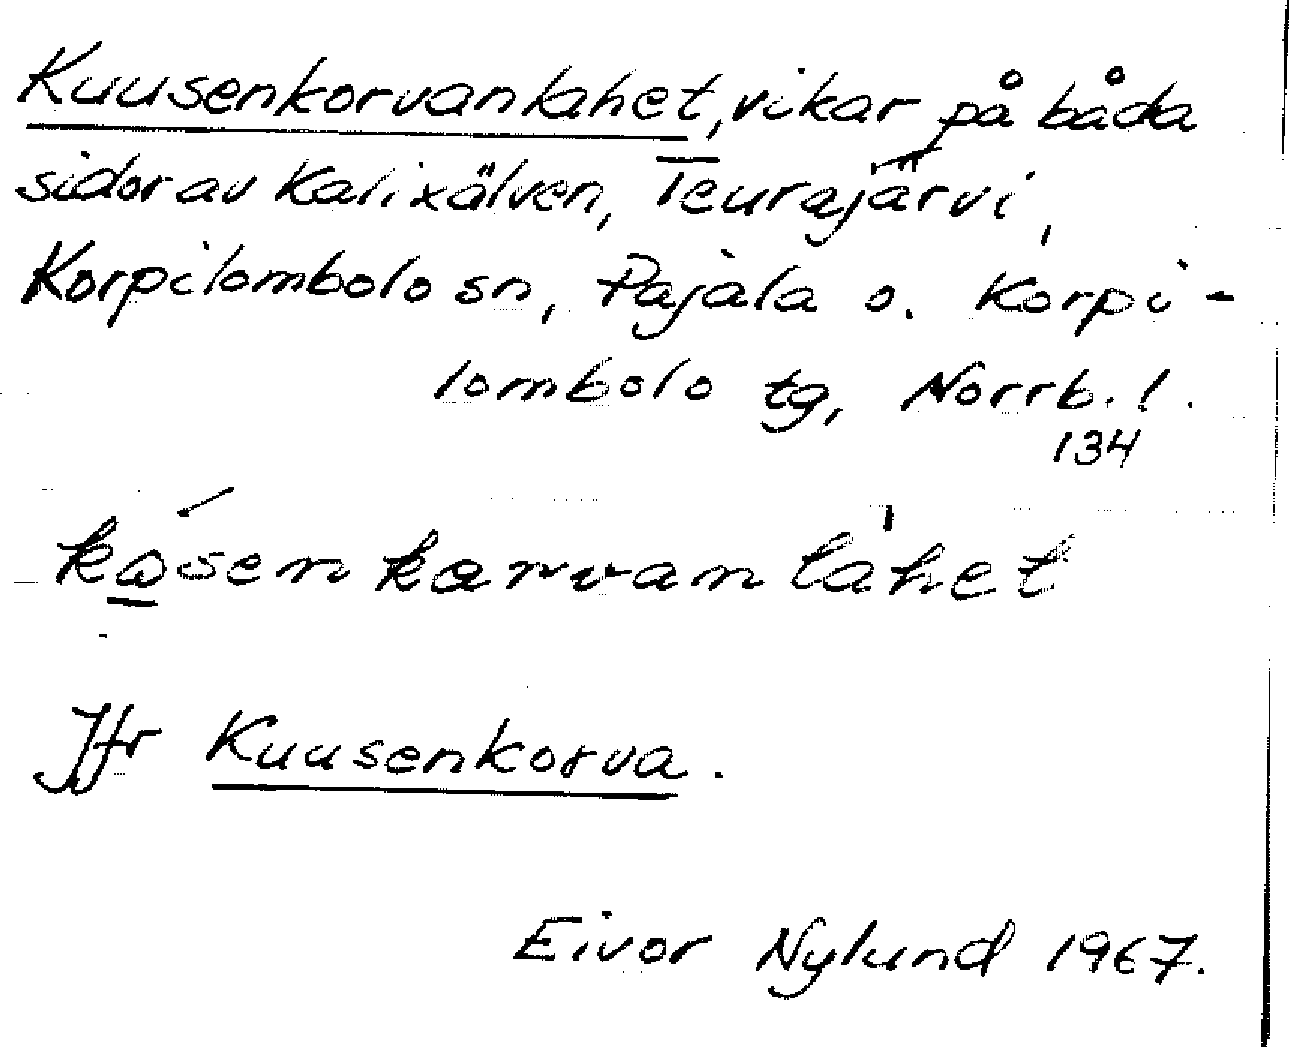 Kuusenkorvanlahet, vikar på båda
sidor av Kalixälven, Teurajärvi,
Korpilombolo sn, Pajala o. Korpi-
lombolo tg, Norrb. l.
134
kosenkorvanlahet
Jfr Kuusenkorva.
Eivor Nylund 1967.